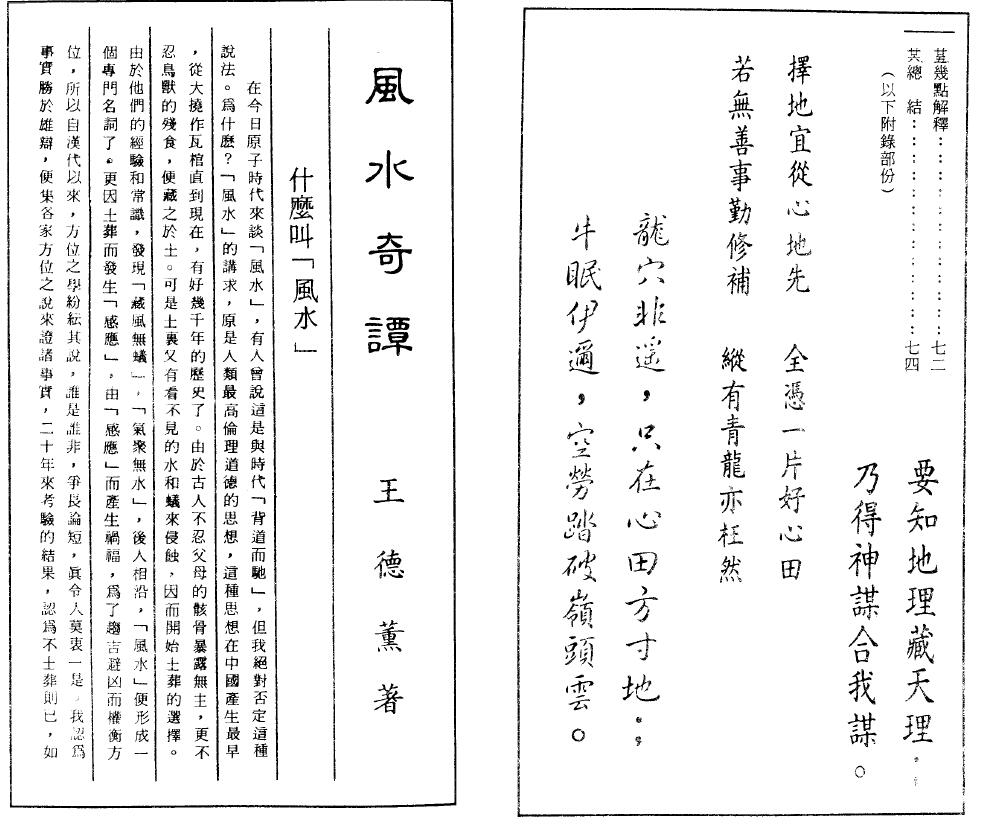 幾點解釋：：：：：：：：：：七二
總　結：：：：：：：：：：：七四
（以下附錄部份）
要知地理藏天理，
乃得神謀合我謀。
擇地宜從心地先　全憑一片好心田
若無善事勤修補　縱有青龍亦枉然
龍穴非遙，只在心田方寸地；
牛眠伊邇，空勞踏破嶺頭雲。
風水奇譚　王德薰著
什麼叫「風水」
在今日原子時代來談「風水」，有人曾說這是與時代「背道而馳」，但我絕對否定這種
說法。爲什麽？「風水」的講求，原是人類最高倫理道德的思想，這種思想在中國產生最早
，從大撓作瓦棺直到現在，有好幾千年的歷史了。由於古人不忍父母的骸骨暴露無主，更不
忍鳥獸的殘食，便藏之於土。可是土裏又有看不見的水和蟻來侵蝕，因而開始土葬的選擇。
由於他們的經驗和常識，發現「藏風無蟻」，「氣聚無水」，後人相沿，「風水」便形成一
個專門名詞了。更因土葬而發生「感應」，由「感應」而產生禍福，爲了趨吉避凶而權衡方
位，所以自漢代以來，方位之學紛紜其說，誰是誰非，爭長論短，眞令人莫衷一是。我認爲
事實勝於雄辯，便集各家方位之說來證諸事實，二十年來考驗的結果，認爲不土葬則已，如